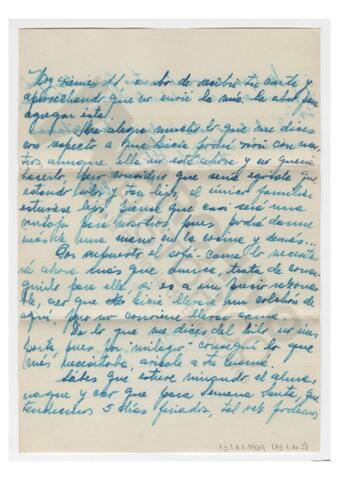 Hoy viernes 11 acabo de recibir tu carta y
aprovechando que no envié la mía la abrí para
agregar ésta.
Me alegra mucho lo que me dices
con respecto a que Licia podrá vivir con noso-
tros aunque ella no está ahora y no quería
hacerlo, pero considero que sería egoísta que
estando solos y tan lejos, el único familiar
estuviese lejos, piensa que casi será una
ventaja para nosotros pues podrá darme
más de una mano en la cocina y demás...
Por supuesto el sofá-cama lo necesita-
rá ahora más que nunca, trata de conse-
guirlo para ella, si es a un precio razona-
ble, creo que Licia llevará un colchón de
aquí pero no conviene llevar cama.
De lo que me dices del hilo no im-
porta pues por "milagro" conseguí lo que
más necesitaba, avísale a tu mamá.
Sabes que estuve mirando el alma-
naque y creo que para Semana Santa, que
tendremos 5 días feriados, tal vez podamos